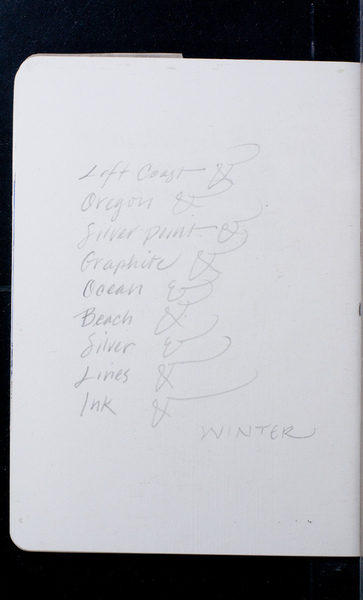 Left Coast &
Oregon &
Silver point &
Graphite &
Ocean &
Beach &
Silver &
Lines &
Ink &
WINTER